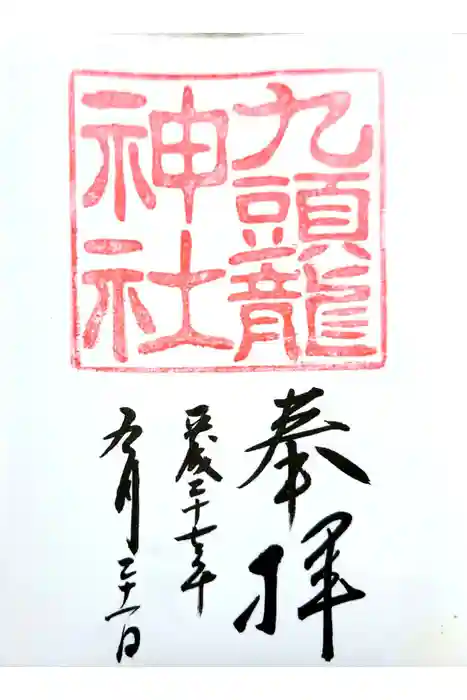 九頭龍
神社
奉拝
平成二十七年
五月二十一日